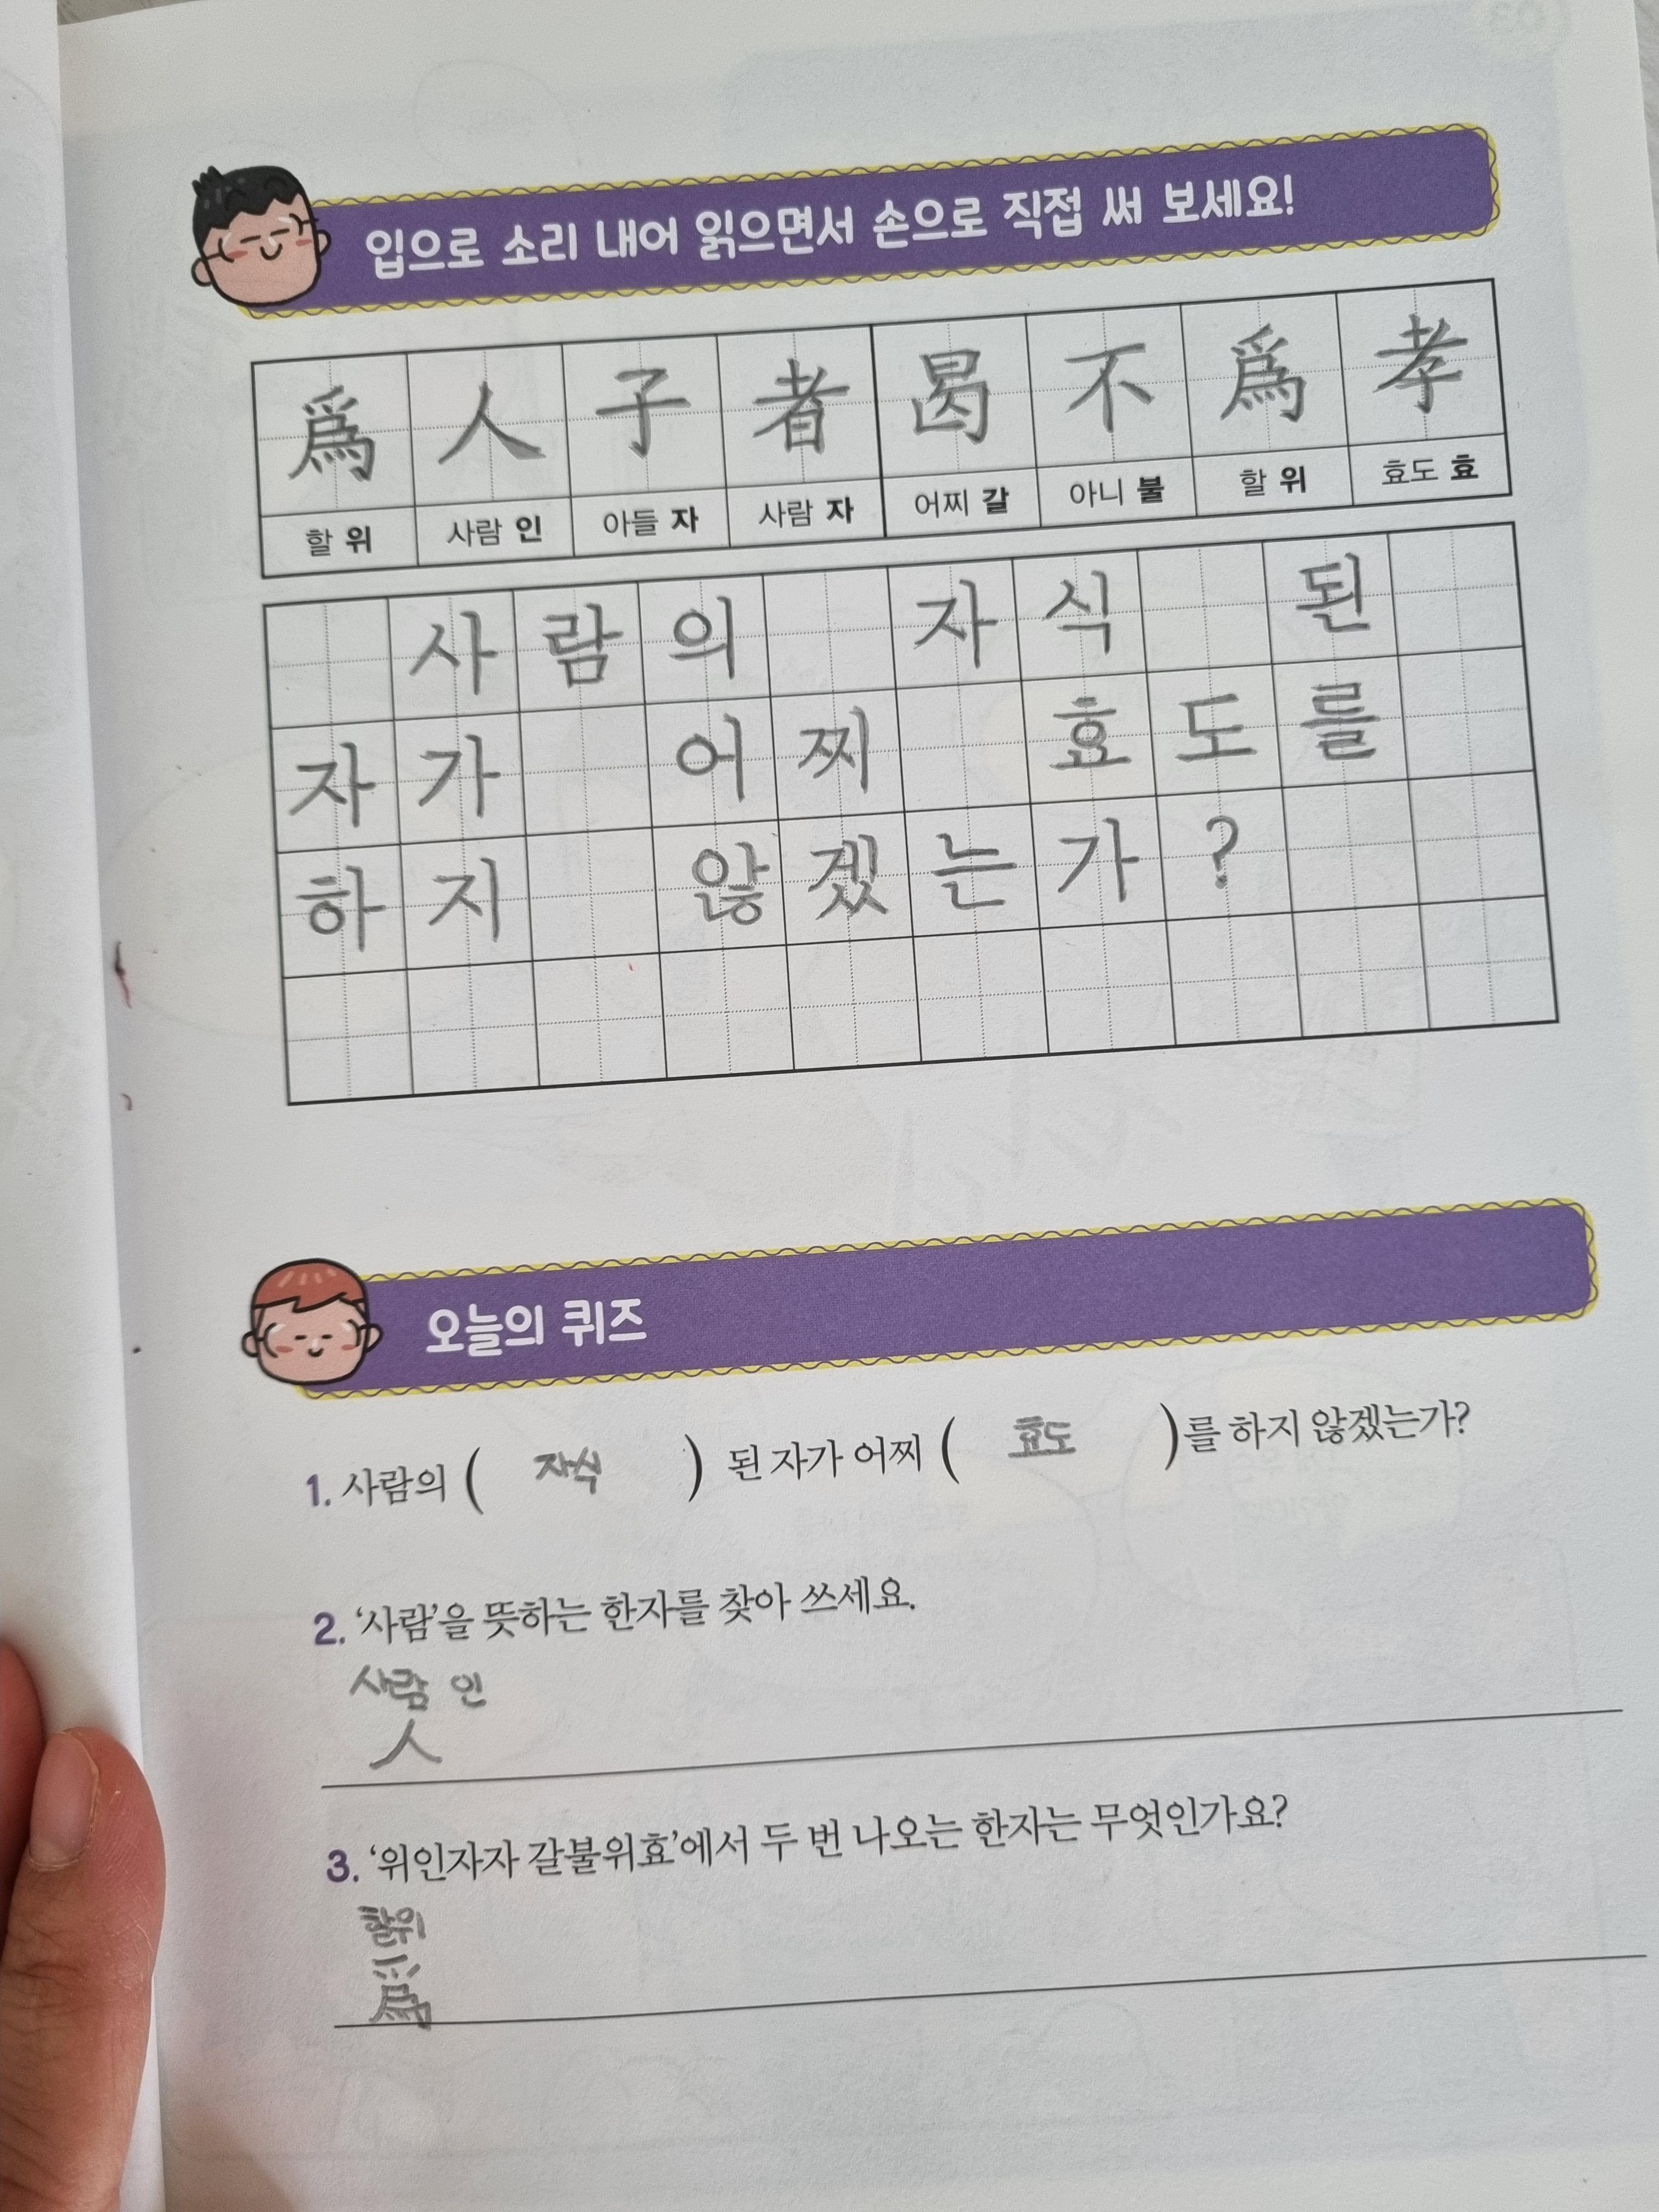 입으로 소리 내어 읽으면서 손으로 직접 써 보세요!
爲 人 子 者 曷 不 爲 孝
할 위 사람 인 아들 자 사람 자 어찌 갈 아니 불 할 위 효도 효
사람의 자식 된
자가 어찌 효도를
하지 않겠는가?
오늘의 퀴즈
1. 사람의 ( 자식 ) 된 자가 어찌 ( 효도 )를 하지 않겠는가?
2. ‘사람’을 뜻하는 한자를 찾아 쓰세요.
사람 인
人
3. ‘위인자자 갈불위효’에서 두 번 나오는 한자는 무엇인가요?
할위
爲